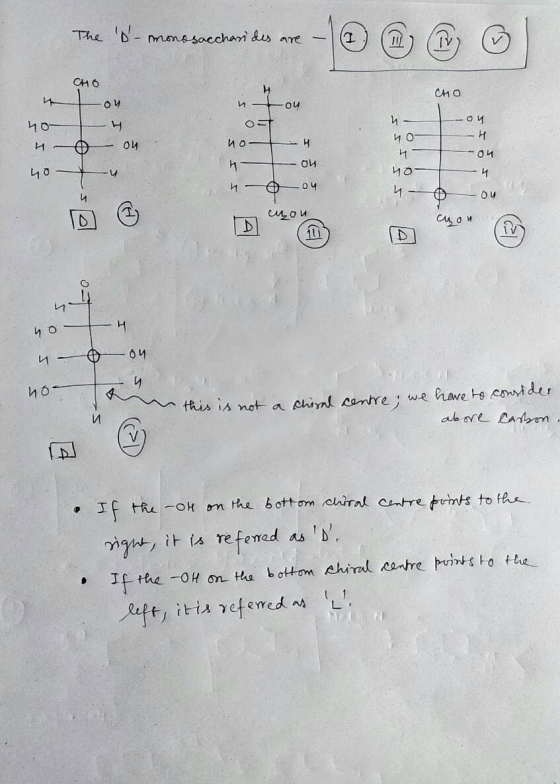 The 'D'- monosaccharides are – I III IV V
CHO H CHO
H OH H OH H OH
HO H O= HO H
H OH HO H H OH
HO H H OH HO H
H H OH H OH
CH2OH CH2OH
D I D III D IV
O
H
HO H
H OH
HO H
H
this is not a chiral centre; we have to consider
above Carbon.
D V
• If the -OH on the bottom chiral centre points to the
right, it is referred as 'D'.
• If the -OH on the bottom chiral centre points to the
left, it is referred as 'L'.